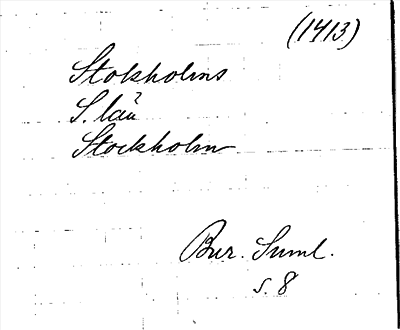 (1413)
Stokholms
S. län
Stockholm
Bur. Suml.
s. 8